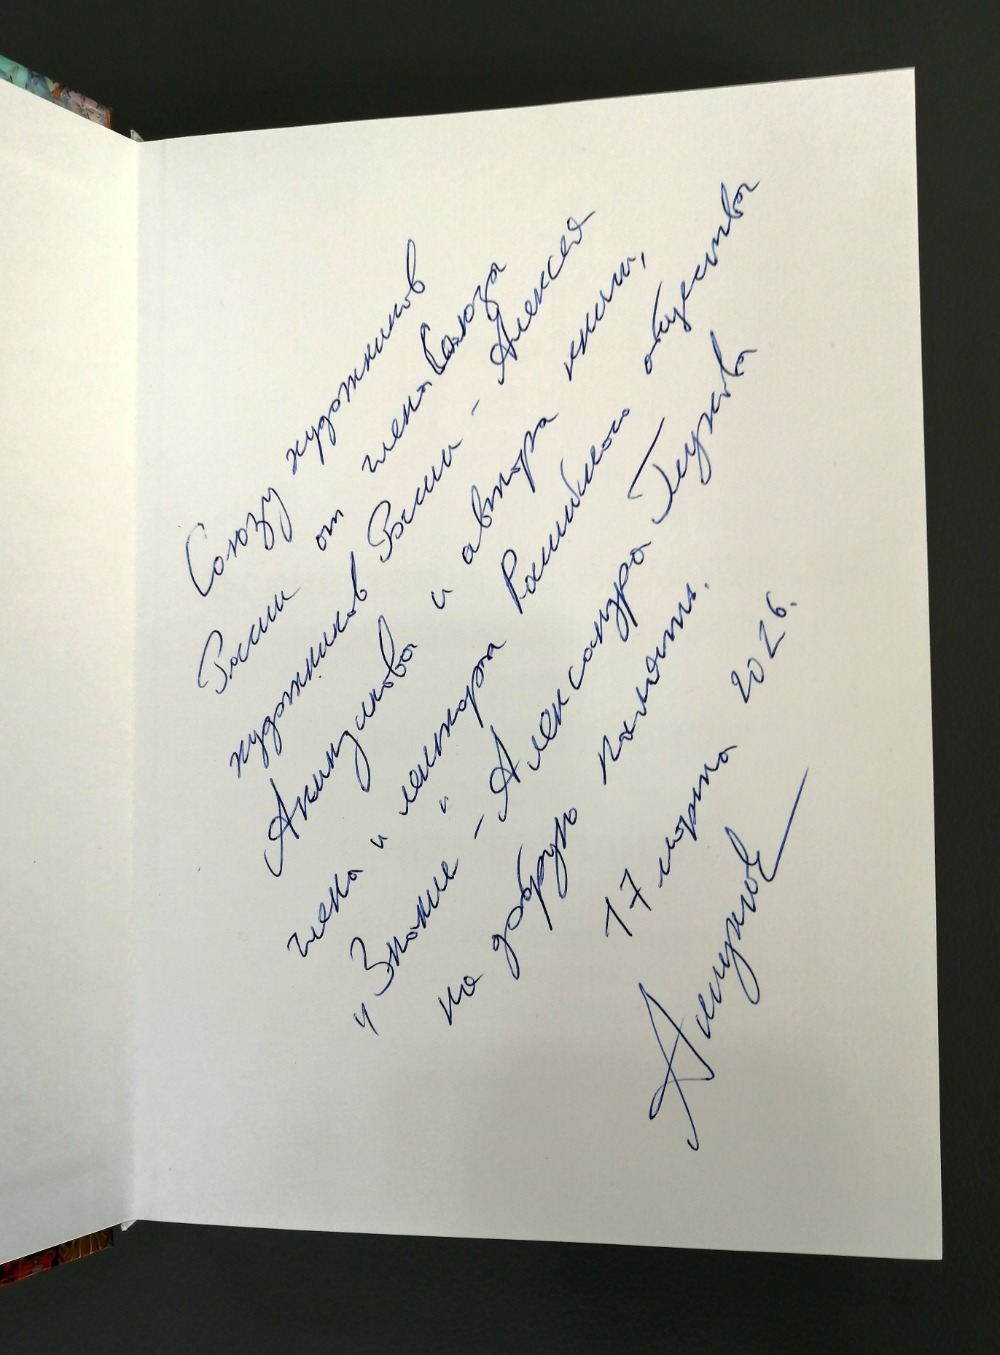 Союзу художников
России от члена Союза
художников России - Алексея
Акиндинова и автора книги,
члена и лектора Российского общества
"Знание" - Александра
на добрую память.
17 марта 2026.